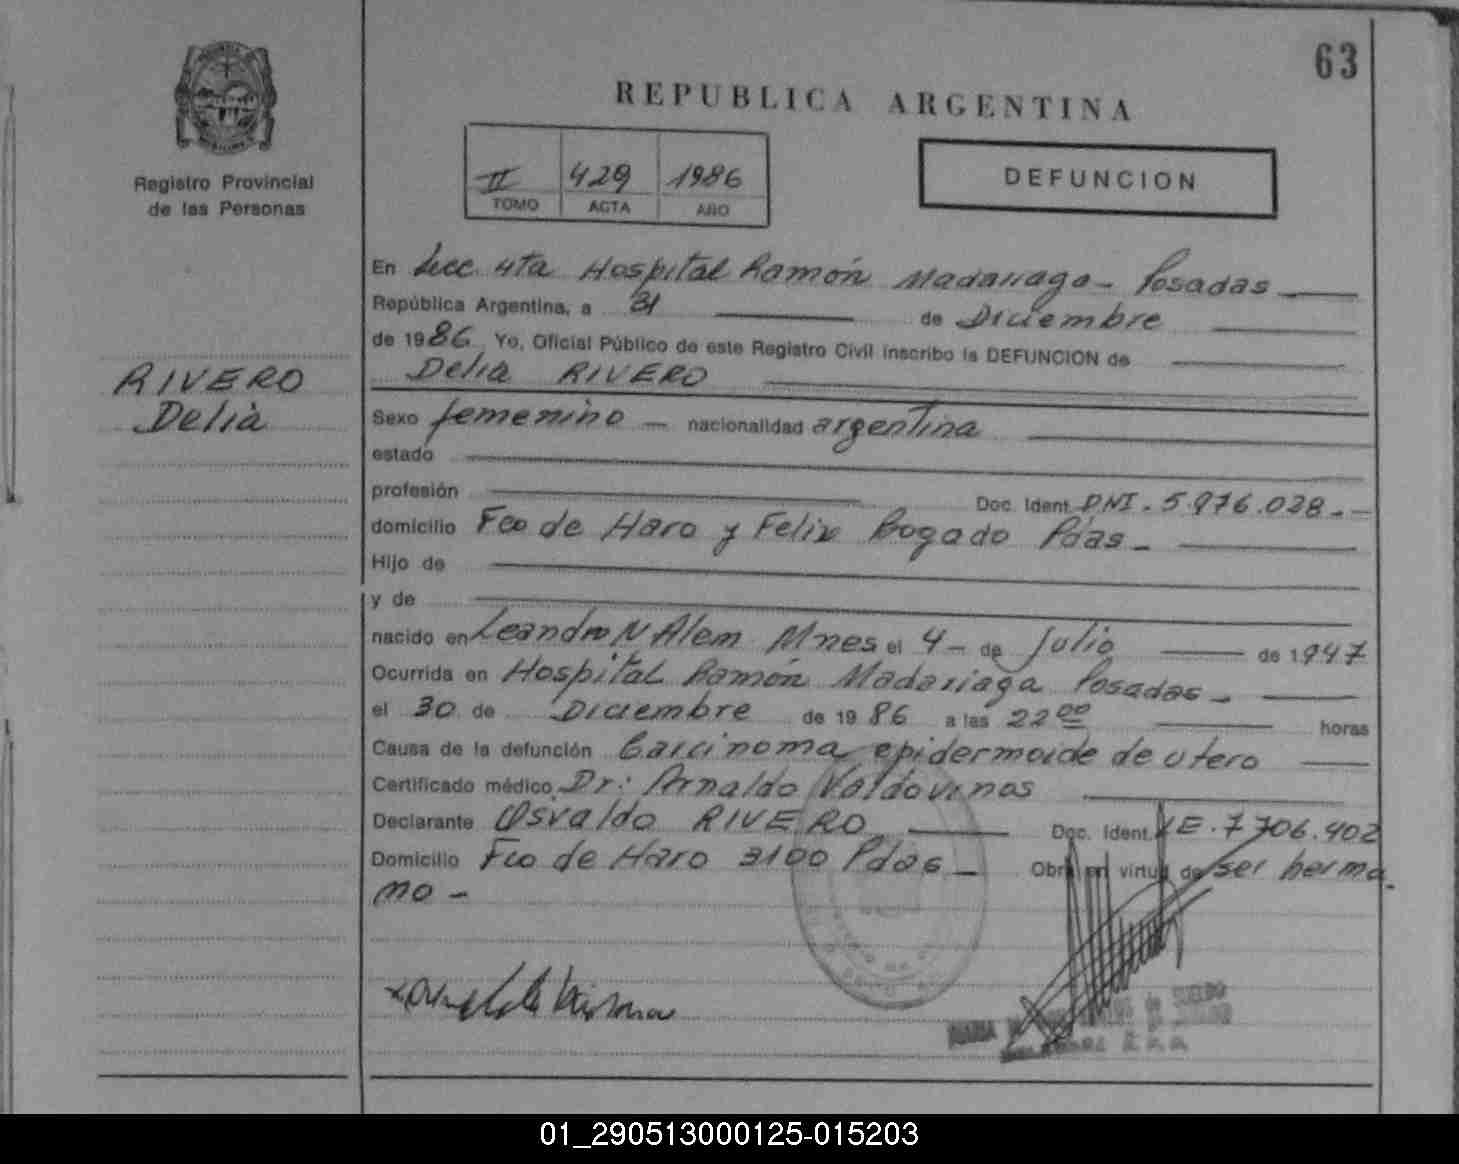 63
REPUBLICA ARGENTINA
Registro Provincial
de las Personas
II 429 1986
TOMO ACTA AÑO
DEFUNCION
RIVERO
Delia
En Secc. 4ta Hospital Ramón Madariaga - Posadas
República Argentina, a 31 de Diciembre
de 1986 Yo, Oficial Público de este Registro Civil inscribo la DEFUNCION de
Delia RIVERO
Sexo femenino - nacionalidad argentina
estado
profesión Doc. Ident. DNI. 5.976.028.-
domicilio Fco de Haro y Felix Bogado Pdas -
Hijo de
y de
nacido en Leandro N Alem Mnes el 4 - de Julio de 1947
Ocurrida en Hospital Ramón Madariaga Posadas -
el 30 de Diciembre de 1986 a las 22 00 horas
Causa de la defunción Carcinoma epidermoide de utero
Certificado médico Dr: Arnaldo Valdovinos
Declarante Osvaldo RIVERO Doc. Ident. LE. 7.706.402
Domicilio Fco de Haro 3100 Pdas - Obra en virtud de ser herma
no -
01_290513000125-015203